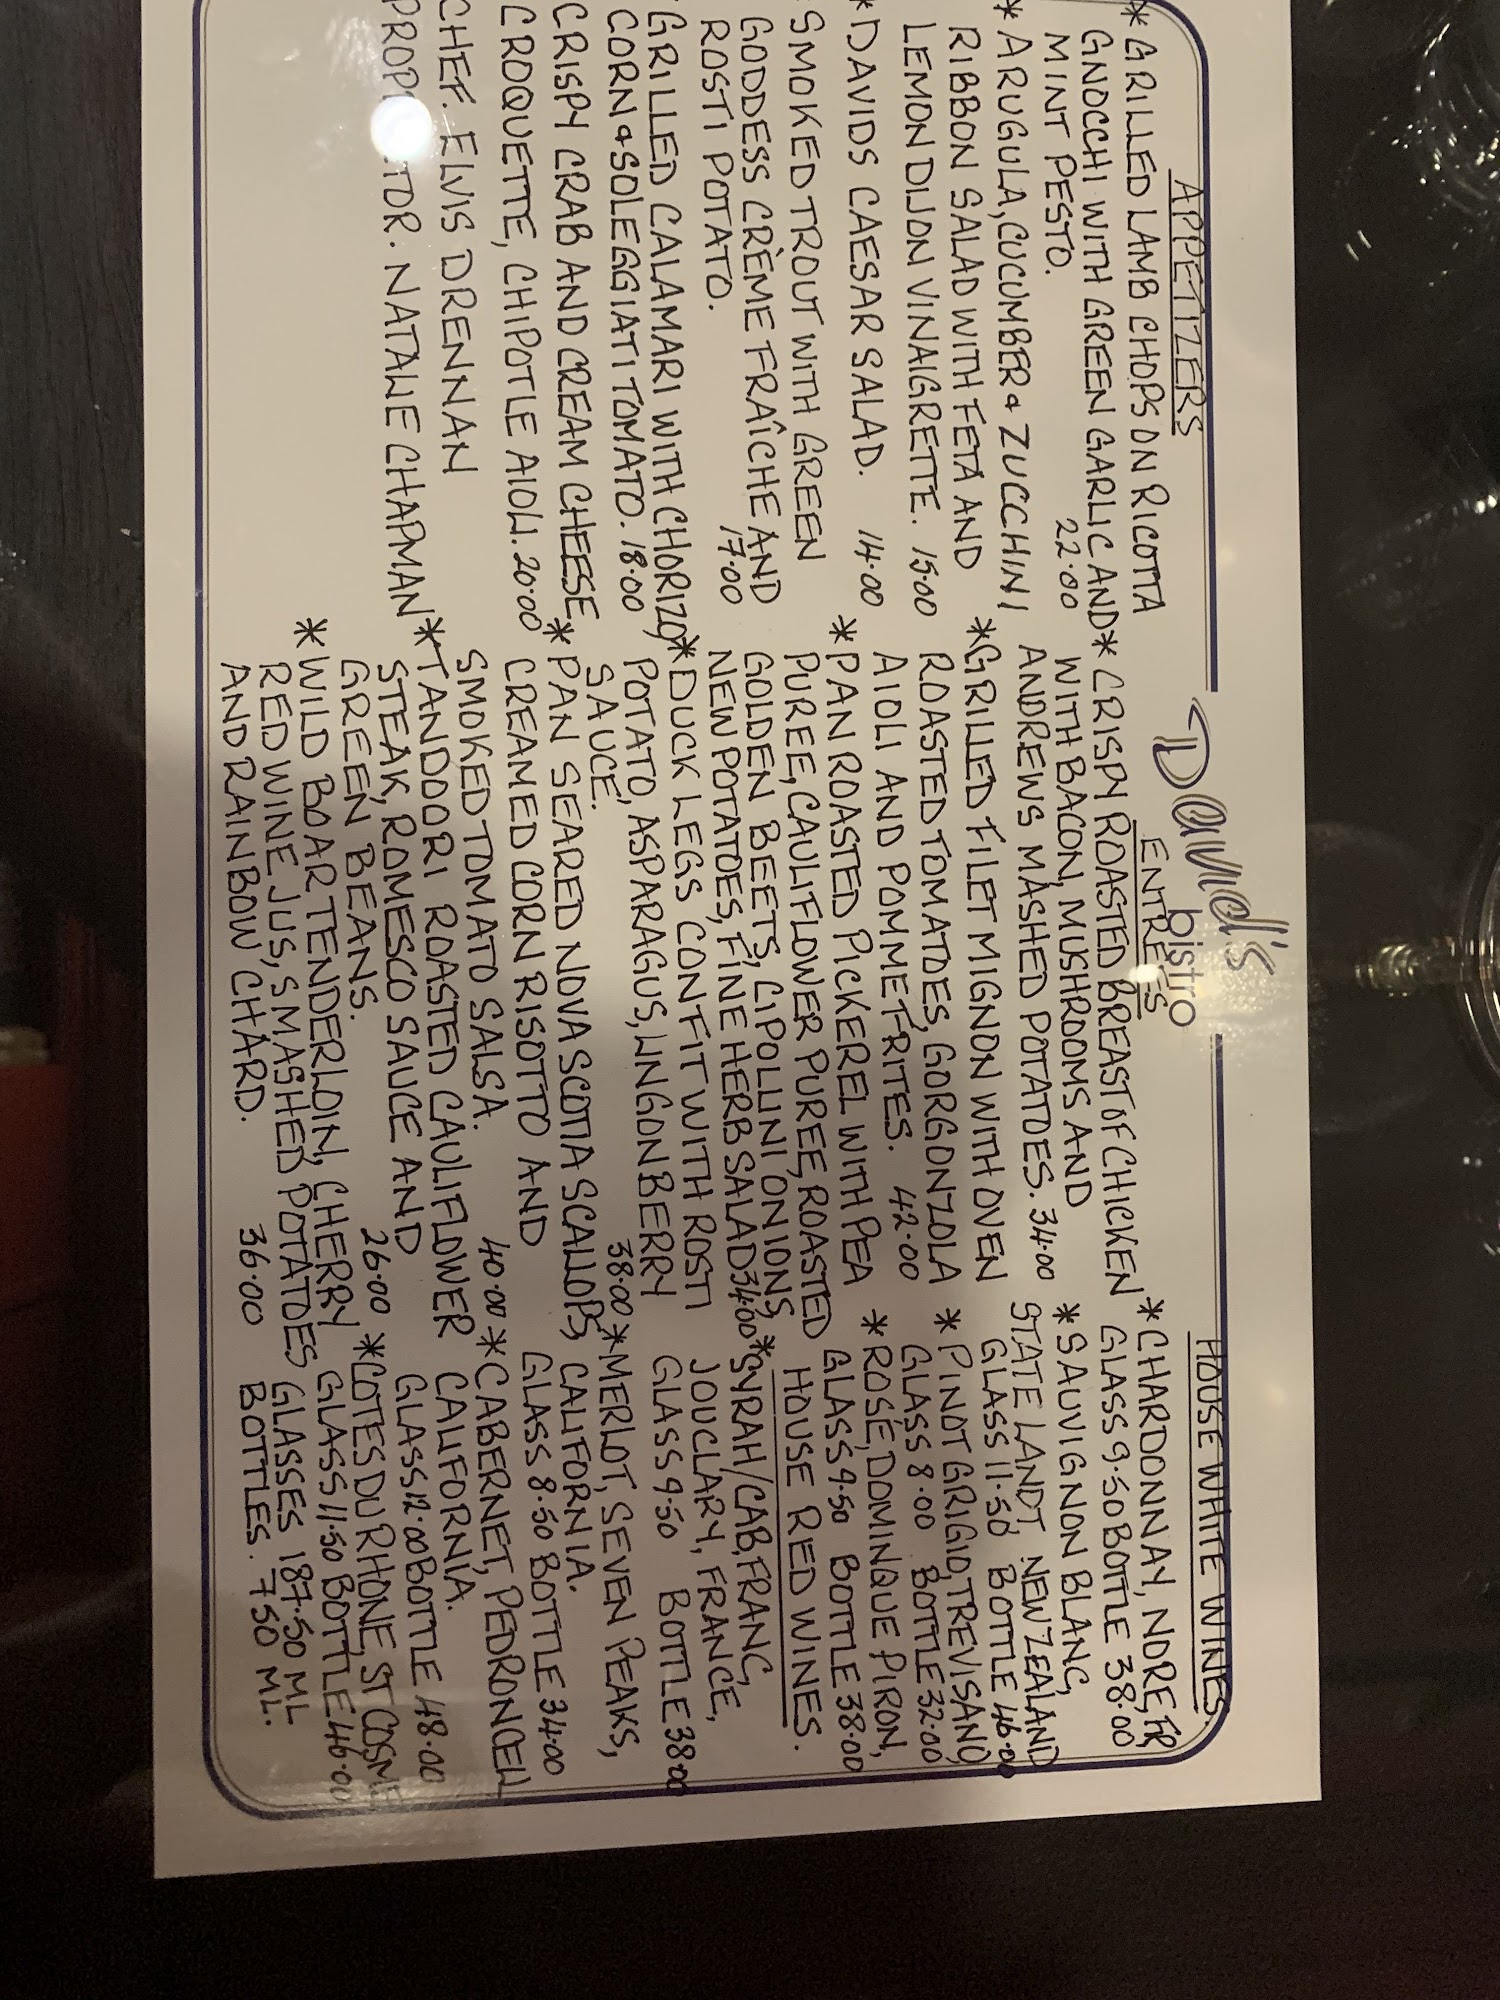 David's
bistro
APPETIZERS
* GRILLED LAMB CHOPS ON RICOTTA
GNOCCHI WITH GREEN GARLIC AND
MINT PESTO. 22.00
* ARUGULA, CUCUMBER & ZUCCHINI
RIBBON SALAD WITH FETA AND
LEMON DIJON VINAIGRETTE. 15.00
* DAVIDS CAESAR SALAD. 14.00
SMOKED TROUT WITH GREEN
GODDESS CRÈME FRAÎCHE AND
ROSTI POTATO. 17.00
GRILLED CALAMARI WITH CHORIZO,
CORN & SOLEGGIATI TOMATO. 18.00
CRISPY CRAB AND CREAM CHEESE
CROQUETTE, CHIPOTLE AIOLI. 20.00
CHEF. ELVIS DRENNAN
NATALIE CHAPMAN
ENTRÉES
* CRISPY ROASTED BREAST OF CHICKEN
WITH BACON, MUSHROOMS AND
ANDREWS MASHED POTATOES. 34.00
* GRILLED FILET MIGNON WITH OVEN
ROASTED TOMATOES, GORGONZOLA
AIOLI AND POMME FRITES. 42.00
* PAN ROASTED PICKEREL WITH PEA
PUREE, CAULIFLOWER PUREE, ROASTED
GOLDEN BEETS, CIPOLLINI ONIONS,
NEW POTATOES, FINE HERB SALAD 34.00
* DUCK LEGS CONFIT WITH ROSTI
POTATO, ASPARAGUS, LINGONBERRY
SAUCE. 38.00
* PAN SEARED NOVA SCOTIA SCALLOPS,
CREAMED CORN RISOTTO AND
SMOKED TOMATO SALSA. 40.00
* TANDOORI ROASTED CAULIFLOWER
STEAK, ROMESCO SAUCE AND
GREEN BEANS. 26.00
* WILD BOAR TENDERLOIN, CHERRY
RED WINE JUS, SMASHED POTATOES
AND RAINBOW CHARD. 36.00
HOUSE WHITE WINES.
* CHARDONNAY, NORE, FR
GLASS 9.50 BOTTLE 38.00
* SAUVIGNON BLANC,
STATE LANDT, NEW ZEALAND
GLASS 11.50 BOTTLE 46.00
* PINOT GRIGIO, TREVISANO,
GLASS 8.00 BOTTLE 32.00
* ROSÉ, DOMINIQUE PIRON,
GLASS 9.50 BOTTLE 38.00
HOUSE RED WINES.
* SYRAH/CAB, FRANC,
JOUCLARY, FRANCE,
GLASS 9.50 BOTTLE 38.00
* MERLOT, SEVEN PEAKS,
CALIFORNIA.
GLASS 8.50 BOTTLE 34.00
* CABERNET, PEDRONCELLI
CALIFORNIA.
GLASS 12.00 BOTTLE 48.00
* COTES DU RHONE, ST COSME
GLASS 11.50 BOTTLE 46.00
GLASSES 187.50 ML
BOTTLES. 750 ML.